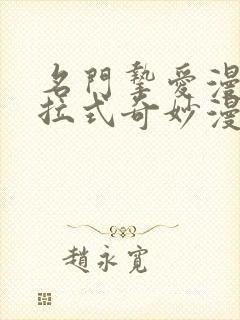 名門摯愛漫
拉式奇妙漫
趙永寬